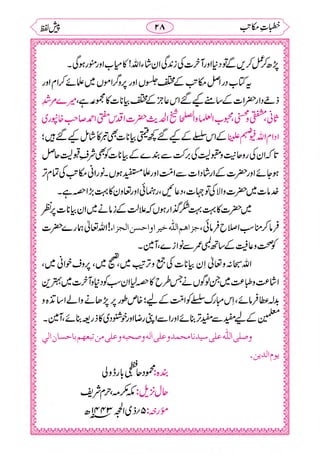 خطباتِ مکاتب ۲۸ پیش لفظ
پڑھ کر عمل کریں گے تو دنیا اور آخرت کی زندگی ان شاء اللہ! کامیاب اور منور ہوگی۔
یہ کتاب دراصل مکاتب کے مختلف جلسوں اور پروگراموں میں علمائے کرام اور
ذمے دار حضرات کے سامنے کیے گئے اس عاجز کے مختلف بیانات کا مجموعہ ہے، میرے مرشدِ
ثانی، مشفقی محسنی و محبوبی محبوب العلماء والصلحاء شیخ الحدیث حضرت اقدس مفتی احمد صاحب خانپوری
ادام اللہ فیوضہم علینا کے ارشادات کے سلسلے کے کیے گئے کچھ قیمتی بیانات بھی شامل کیے گئے ہیں؛
تاکہ ان کی روحانیت و مقبولیت کی برکت سے بندے کے بیانات کو بھی شرفِ قبولیت حاصل
ہوجائے اور حضرت کے ارشادات سے امت اور علما مستفید ہوں۔ مکاتب کے نورانی کی تمام تر
خدمات میں حضرت والا کی توجہات، دعائیں، رہنمائی اور تعاون کا بہت بڑا حصہ ہے۔
میں حضرت کا بہت بہت شکر گذار ہوں کہ علالت کے زمانے میں ان بیانات پر نظر
فرما کر مناسب اصلاح فرمائی، جزاھم اللہ خیرا واحسن الجزاء، اللہ تعالیٰ! ہمارے حضرت
کو صحت و عافیت کے ساتھ عمر سے نوازے، آمین۔
اللہ سبحانہ وتعالیٰ ان بیانات کی جمع و ترتیب میں، تصحیح میں، پروف میں، خوانی میں،
اشاعت و طباعت میں جن لوگوں نے جس طرح کا حصہ لیا ان سب کو دنیا و آخرت میں بہترین
بدلہ عطا فرمائے، اس مبارک سلسلے کو امت کے لیے؛ خاص طور پر پڑھانے والے اساتذہ و
معلمین کے لیے مفید سے مفید تر بنائے اور اسے اپنی رضا اور خوشنودی کا ذریعہ بنائے، آمین۔
وصلی اللہ علی سیدنا محمد وعلی الہ وصحبہ وعلی من تبعھم باحسان الی
یوم الدین۔
بندہ: محمود حافظجی بارڈولی
حالِ نزیل: مکہ مکرمہ، حرم شریف
مؤرخہ: ۵/ ذی الحجہ ۱۴۴۳ھ